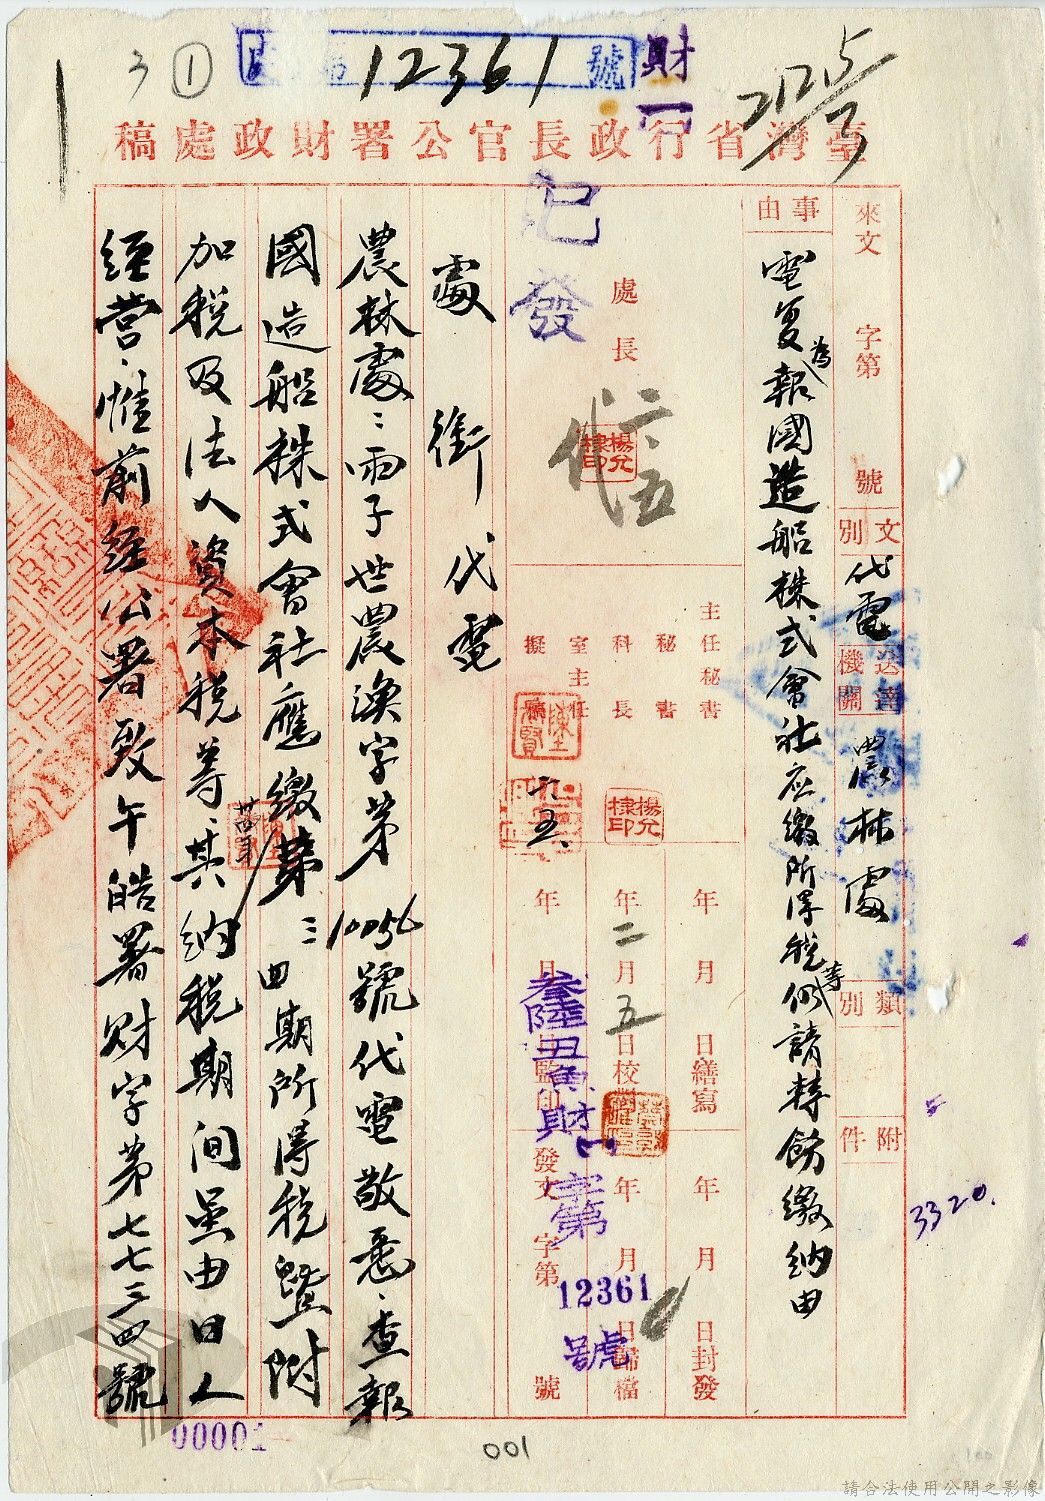 12361 號
財
一
3 ①
臺灣省行政長官公署財政處稿
來文 字第 號
文別 代電
送達機關 農林處
類別
附件
事由
電复為報國造船株式會社应繳所得稅等仍請轉飭繳納由
處長
代
二、五
楊允棣印
主任秘書
秘書
科長
室主任
擬
楊允棣印
年 月 日繕寫
年二月五日校對
年 月 日監印
年 月 日封發
年 月 日歸檔
發文 字第 號
叁陸丑寅財一字第
12361
號
已發
處銜代電
農林處：兩子世農渙字第10056號代電敬悉、查報
國造船株式會社應繳第三四期所得稅暨附
加稅及法人資本稅等、其納稅期间虽由日人
經营、惟前經公署致午皓署財字第七七三四號
3320.
00001
001
請合法使用公開之影像